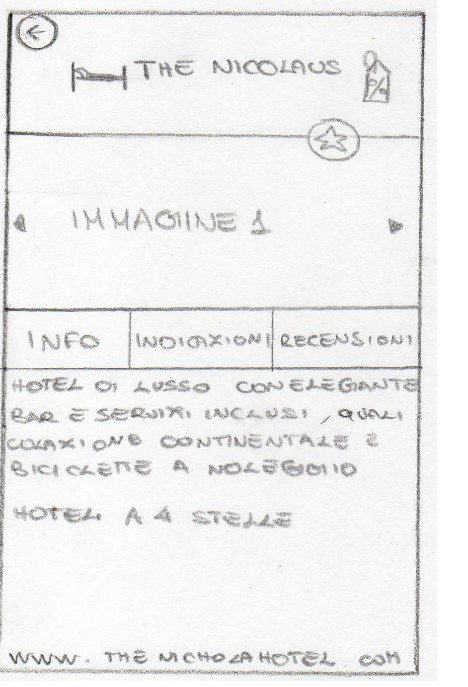 THE NICOLAUS
%
IMMAGIINE 1
INFO
INDICAZIONI
RECENSIONI
HOTEL DI LUSSO CON ELEGANTE
BAR E SERVIZI INCLUSI, QUALI
COLAZIONE CONTINENTALE E
BICICLETTE A NOLEGGIO
HOTEL A 4 STELLE
WWW. THE NICHOLAHOTEL. COM